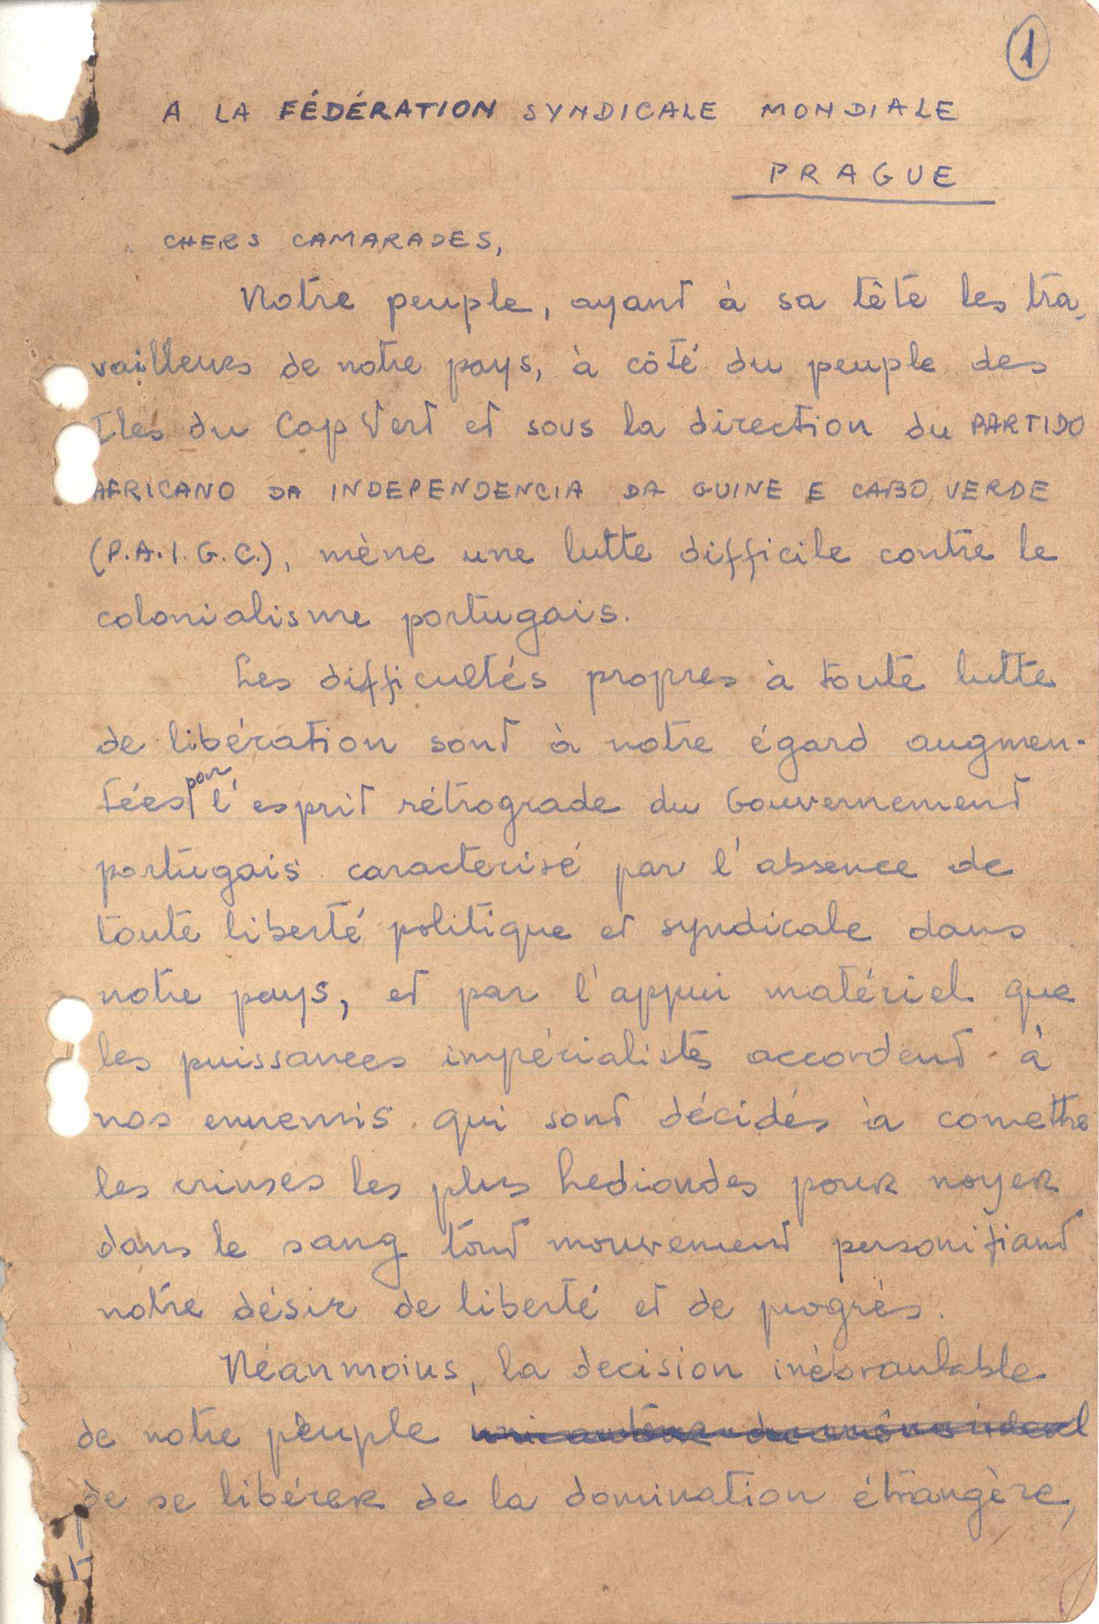 1
A LA FÉDÉRATION SYNDICALE MONDIALE
PRAGUE
CHERS CAMARADES,
Notre peuple, ayant à sa tête les tra-
vailleurs de notre pays, à côté du peuple des
Iles du Cap Vert et sous la direction du PARTIDO
AFRICANO DA INDEPENDENCIA DA GUINE E CABO VERDE
(P.A.I.G.C.), mène une lutte difficile contre le
colonialisme portugais.
Les difficultés propres à toute lutte
de libération sont à notre égard augmen-
tées par l'esprit rétrograde du Gouvernement
portugais caracterisé par l'absence de
toute liberté politique et syndicale dans
notre pays, et par l'appui matériel que
les puissances impérialistes accordent à
nos ennemis qui sont décidés à comettre
les crimes les plus hediondes pour noyer
dans le sang tout mouvement personifiant
notre désir de liberté et de progrès.
Néanmoins, la decision inébranlable
de notre peuple
de se libérer de la domination étrangère,